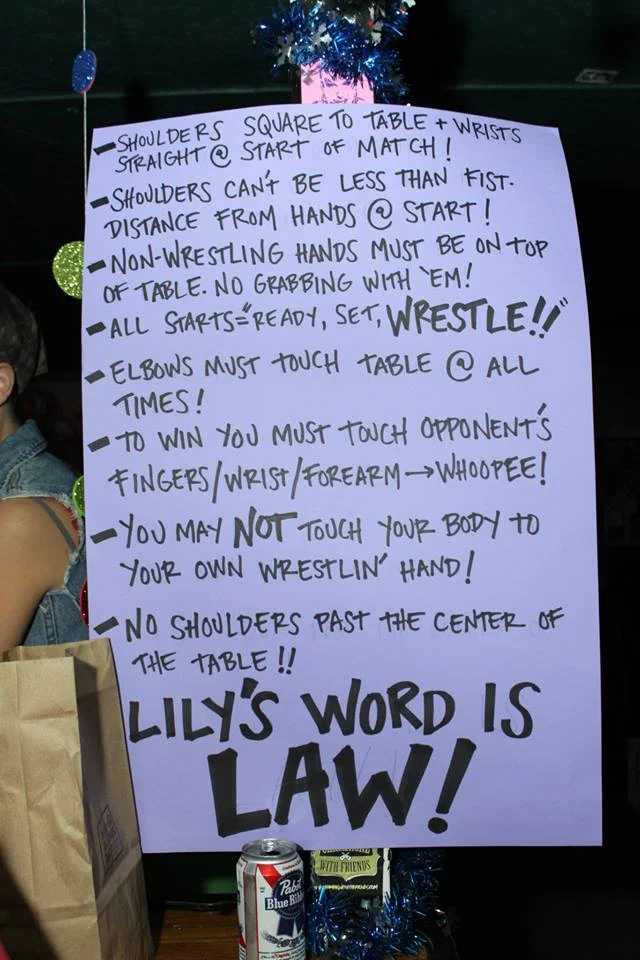 - SHOULDERS SQUARE TO TABLE + WRISTS
STRAIGHT @ START OF MATCH!
- SHOULDERS CAN'T BE LESS THAN FIST-
DISTANCE FROM HANDS @ START!
- NON-WRESTLING HANDS MUST BE ON TOP
OF TABLE. NO GRABBING WITH 'EM!
- ALL STARTS="READY, SET, WRESTLE!!"
- ELBOWS MUST TOUCH TABLE @ ALL
TIMES!
- TO WIN YOU MUST TOUCH OPPONENT'S
FINGERS/WRIST/FOREARM→WHOOPEE!
- YOU MAY NOT TOUCH YOUR BODY TO
YOUR OWN WRESTLIN' HAND!
- NO SHOULDERS PAST THE CENTER OF
THE TABLE!!
LILY'S WORD IS
LAW!
Pabst
Blue Rib
WITH FRIENDS